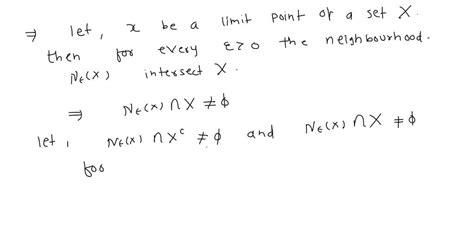 ⇒ let, x be a limit point of a set X.
then for every ε>0 the neighbourhood.
Nε(x) intersect X.
⇒ Nε(x) ∩ X ≠ ϕ
let, Nε(x) ∩ Xᶜ ≠ ϕ and Nε(x) ∩ X ≠ ϕ
for